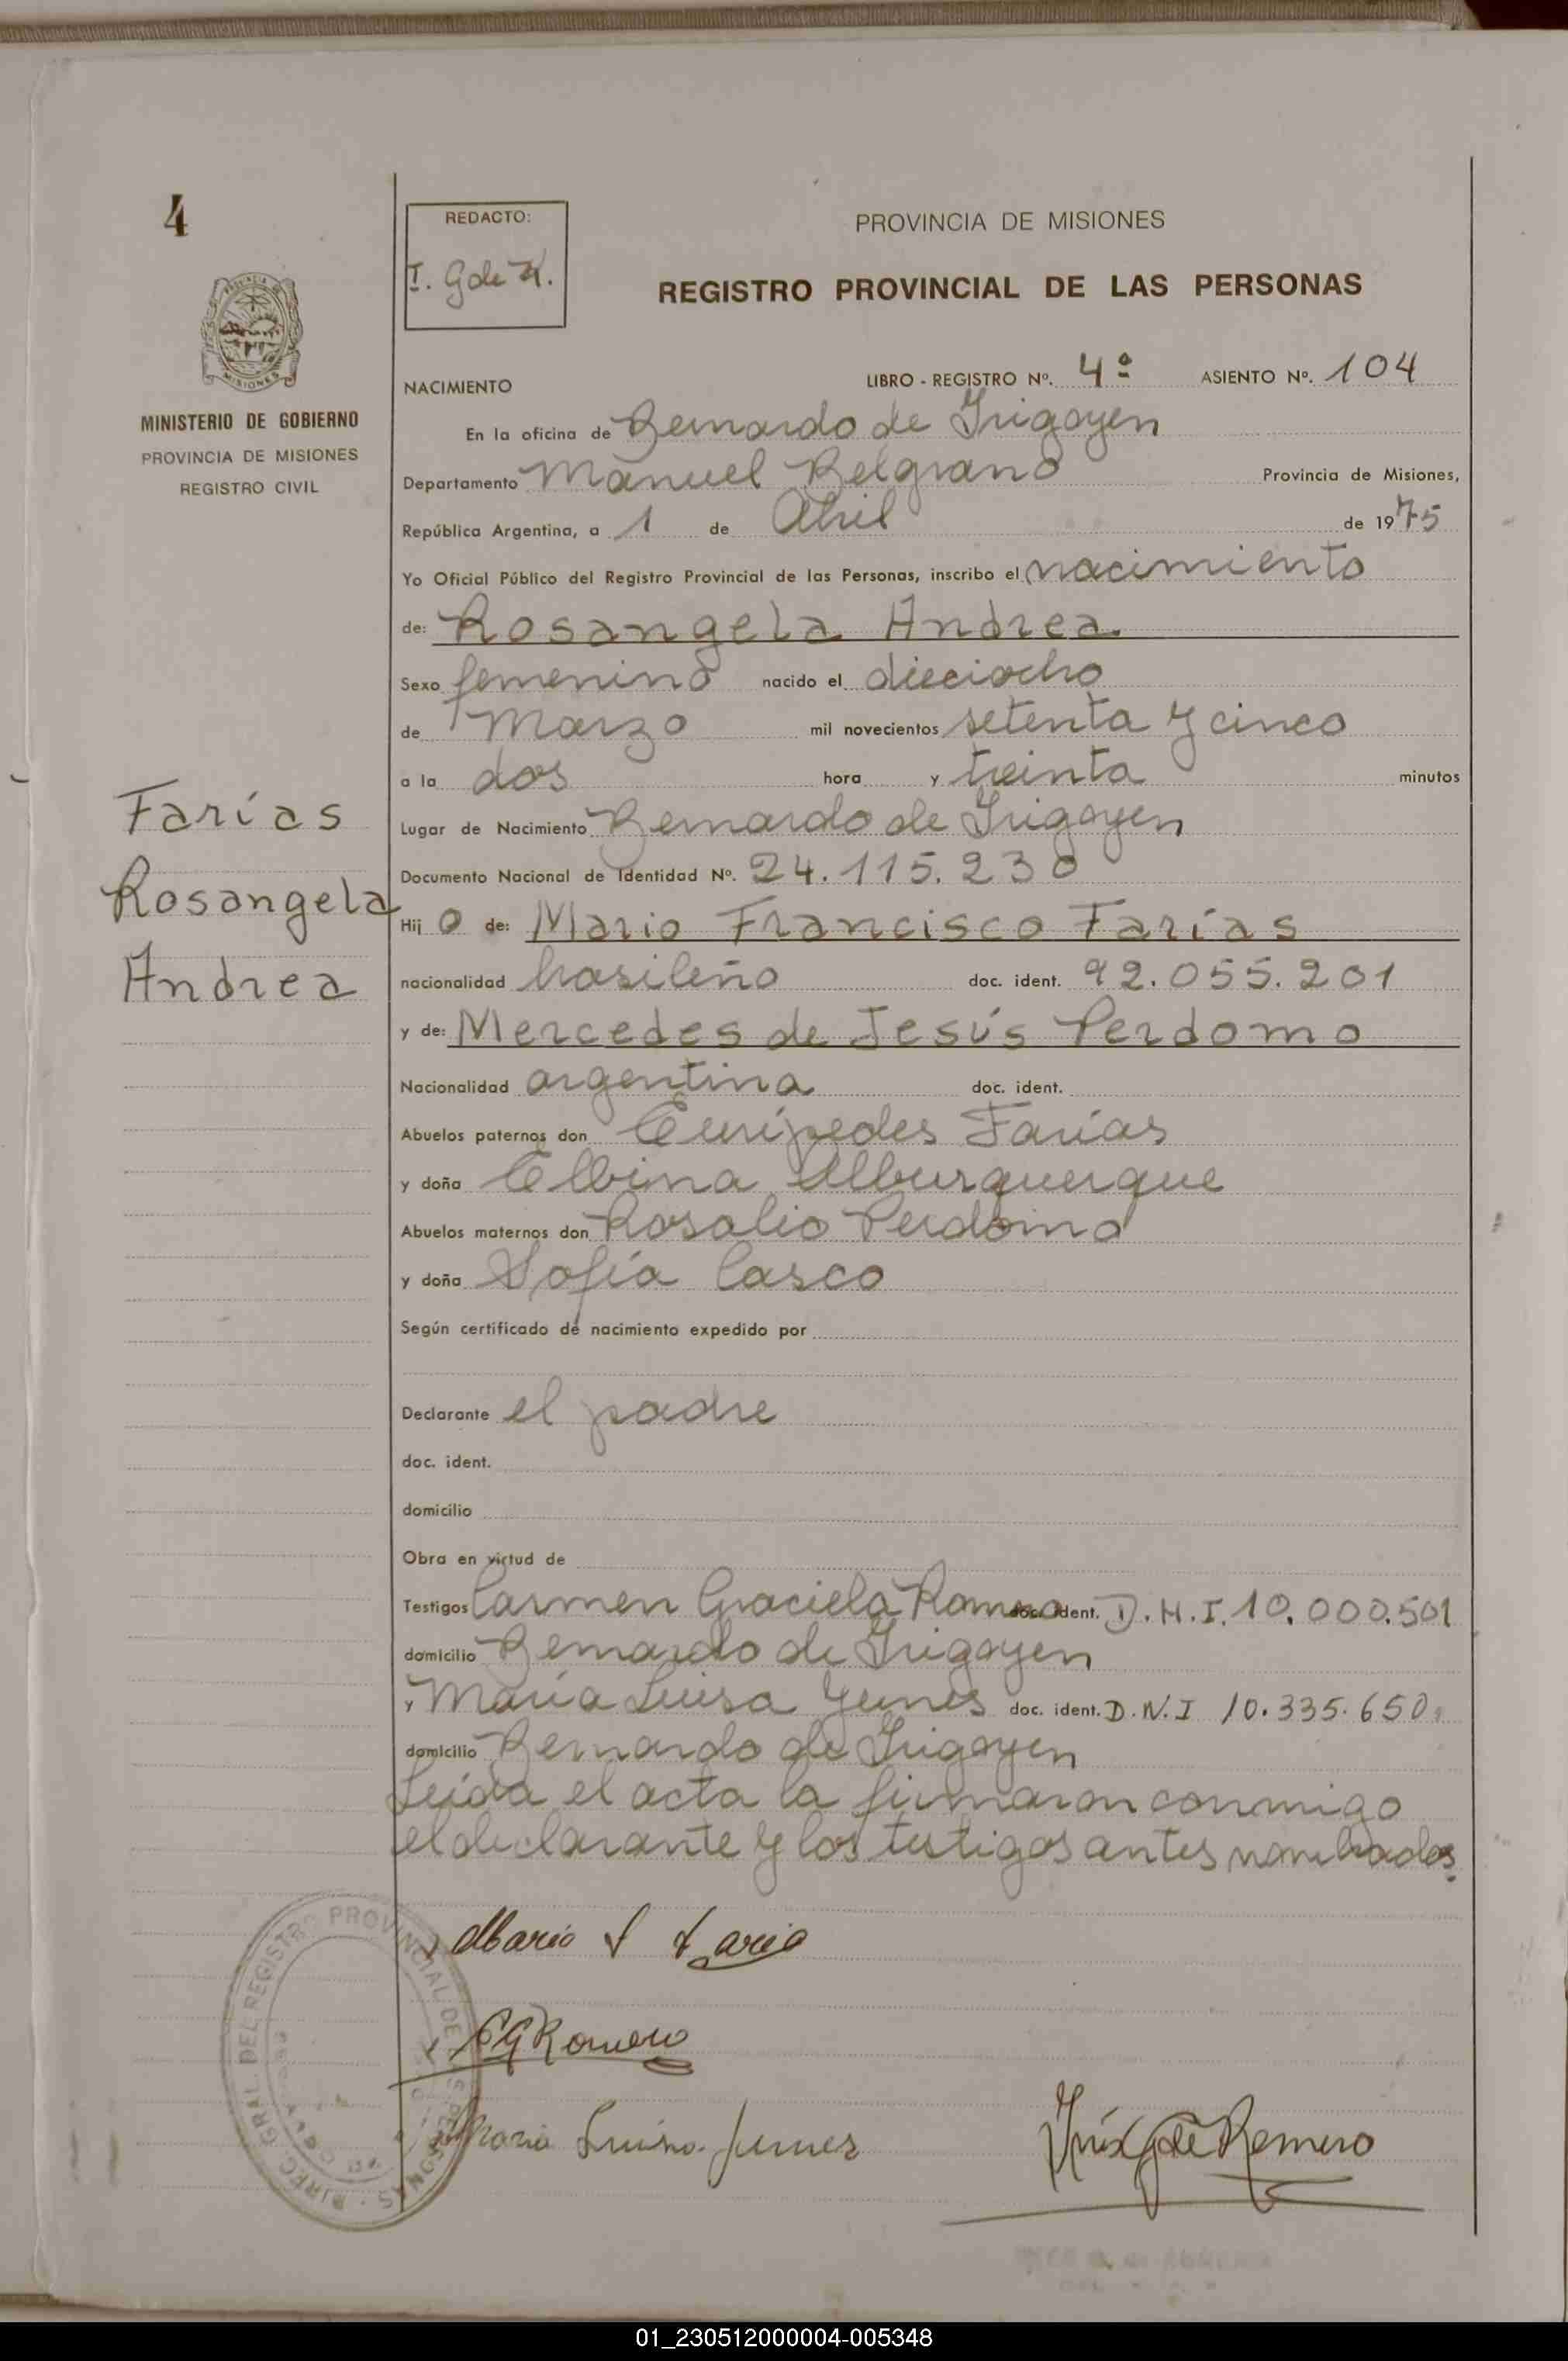 4
REDACTO:
I. G de R.
PROVINCIA DE MISIONES
REGISTRO PROVINCIAL DE LAS PERSONAS
MINISTERIO DE GOBIERNO
PROVINCIA DE MISIONES
REGISTRO CIVIL
NACIMIENTO
LIBRO - REGISTRO Nº. 4º ASIENTO Nº. 104
En la oficina de Bernardo de Irigoyen
Departamento Manuel Belgrano Provincia de Misiones,
República Argentina, a 1 de Abril de 1975
Yo Oficial Público del Registro Provincial de las Personas, inscribo el nacimiento
de: Rosangela Andrea.
Sexo femenino nacido el dieciocho
de Marzo mil novecientos setenta y cinco
a la dos hora y treinta minutos
Farías
Rosangela
Andrea
Lugar de Nacimiento Bernardo de Irigoyen
Documento Nacional de Identidad Nº. 24.115.230
Hij o de: Mario Francisco Farías
nacionalidad brasileño doc. ident. 92.055.201
y de: Mercedes de Jesús Perdomo
Nacionalidad argentina doc. ident.
Abuelos paternos don Eurípedes Farías
y doña Elbina Alburquerque
Abuelos maternos don Rosalio Perdomo
y doña Sofía Casco
Según certificado de nacimiento expedido por
Declarante el padre
doc. ident.
domicilio
Obra en virtud de
Testigos Carmen Graciela Romero doc. ident. D.N.I. 10.000.501
domicilio Bernardo de Irigoyen
y María Luisa Yunes doc. ident. D.N.I 10.335.650.
domicilio Bernardo de Irigoyen
Leída el acta la firmaron conmigo
el declarante y los testigos antes nombrados.
Mario F Faria
CGRomero
Maria Luisa Yunes
Inés G de Romero
DIREC. GRAL. DEL REGISTRO PROVINCIAL DE LAS PERSONAS
01_230512000004-005348